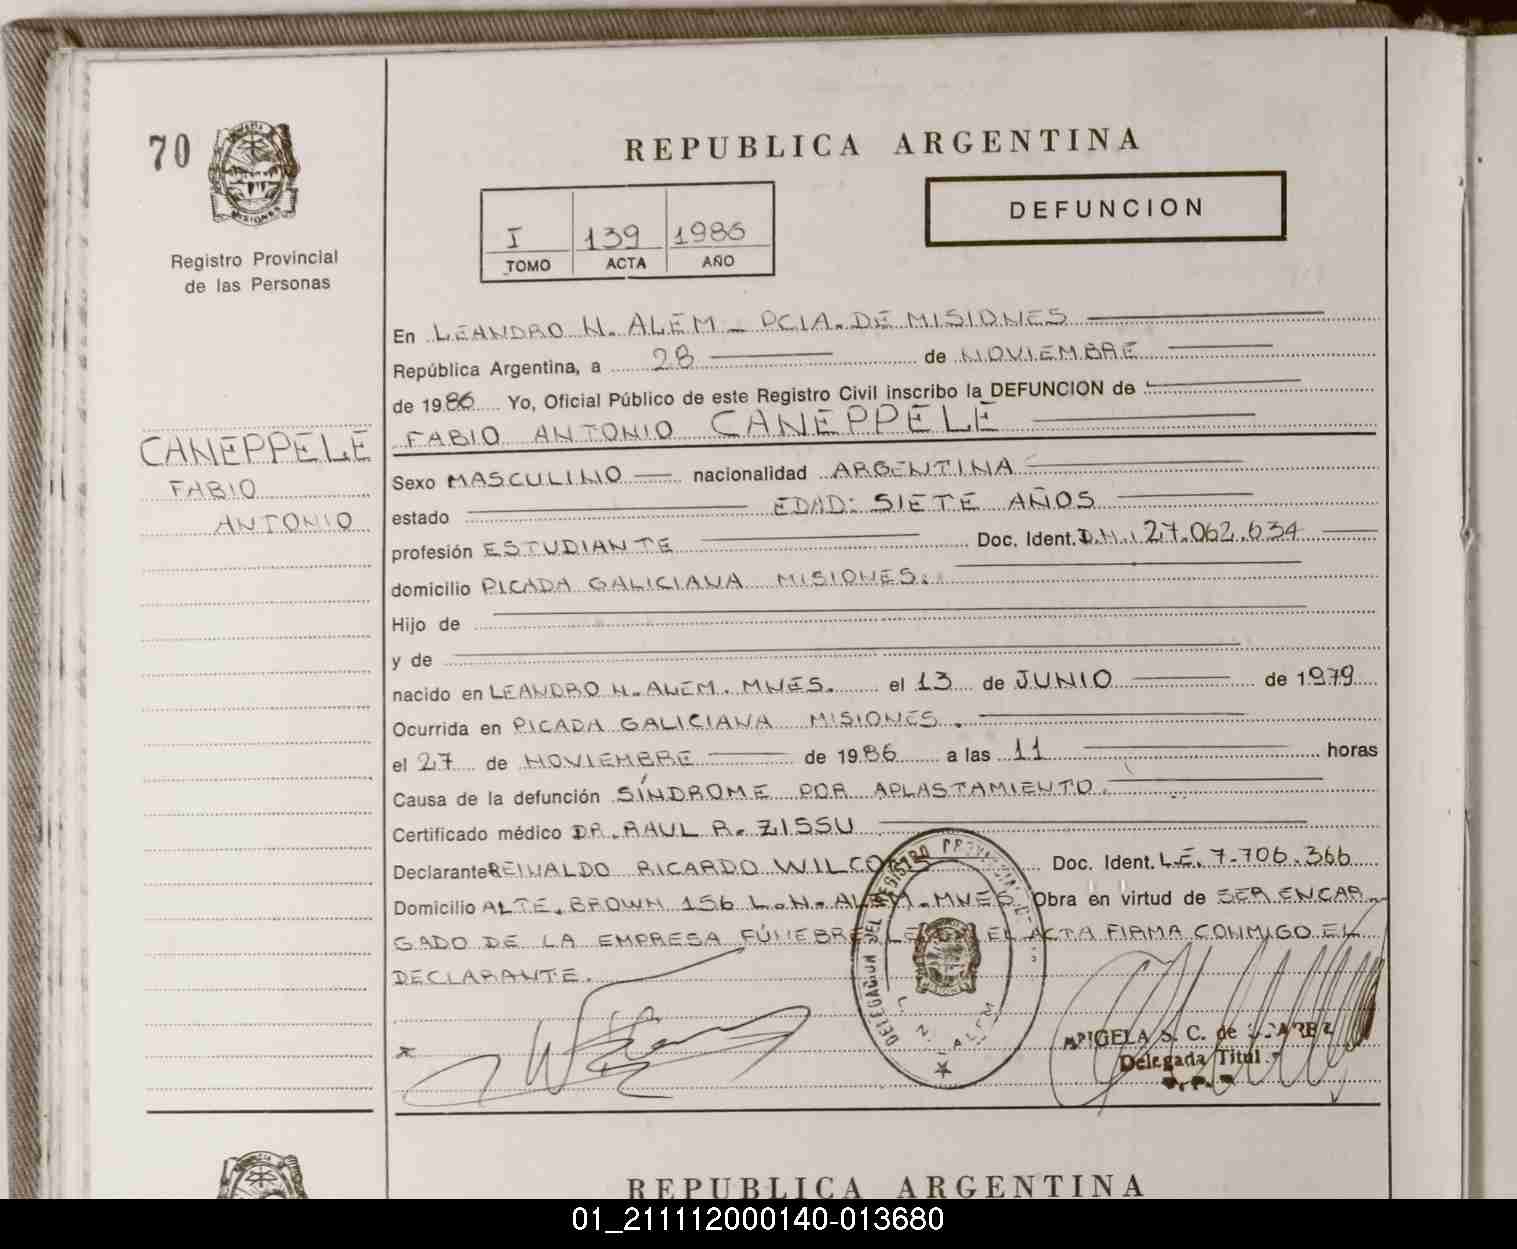 70
MISIONES
Registro Provincial
de las Personas
CANEPPELE
FABIO
ANTONIO
REPUBLICA ARGENTINA
DEFUNCION
I 139 1986
TOMO ACTA AÑO
En LEANDRO N. ALEM - PCIA. DE MISIONES
República Argentina, a 28 de NOVIEMBRE
de 1986 Yo, Oficial Público de este Registro Civil inscribo la DEFUNCION de
FABIO ANTONIO CANEPPELE
Sexo MASCULINO nacionalidad ARGENTINA
estado EDAD: SIETE AÑOS
profesión ESTUDIANTE Doc. Ident. D.N.I 27.062.634
domicilio PICADA GALICIANA MISIONES.
Hijo de
y de
nacido en LEANDRO N. ALEM. MNES. el 13 de JUNIO de 1979
Ocurrida en PICADA GALICIANA MISIONES.
el 27 de NOVIEMBRE de 1986 a las 11 horas
Causa de la defunción SÍNDROME POR APLASTAMIENTO.
Certificado médico DR. RAUL R. ZISSU
Declarante REINALDO RICARDO Doc. Ident. L.E. 7.706.366
Domicilio ALTE. BROWN 156 L.N. ALEM. MNES Obra en virtud de SER ENCAR-
GADO DE LA EMPRESA FÚNEBRE EL ACTA FIRMA CONMIGO EL
DECLARANTE.
DELEGACION DEL REGISTRO PROVINCIAL
L. N. ALEM
S. C. de
Delegada Titul
REPUBLICA ARGENTINA
01_211112000140-013680